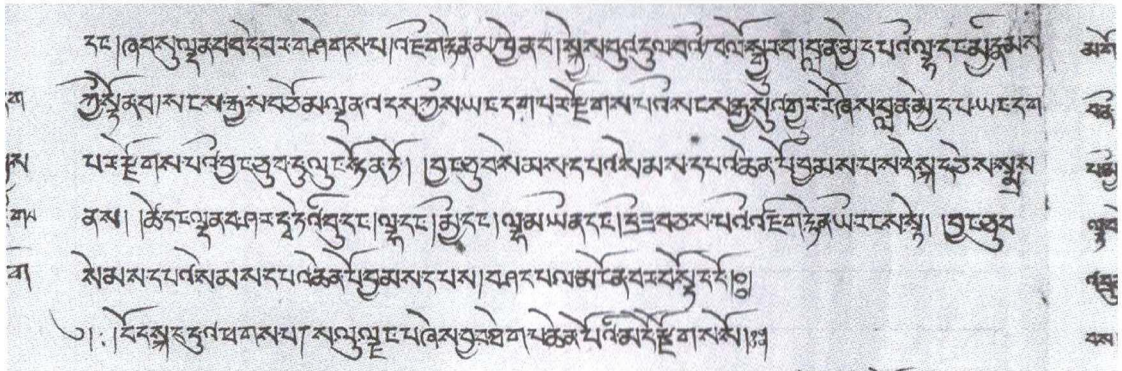 དང།ཞབསུ་ལྡན་བ་བདེ་བར་གཤེགས་པ།འཇིག་རྟེན་མཁྱེན་པ།སྐྱེས་བུ་འདུལ་བའི་ཁ་ལོ་སྒྱུར་བ།བླ་ན་མྱེད་པའི་ལྷ་དང་མྱི་རྣམས
ཀྱི་སྟོན་པ།སངས་རྒྱས་བཅོམ་ལྡན་འདས་ཀྱིས་ཡང་དག་པར་རྫོགས་པའི་སངས་རྒྱསུ་འགྱུར་རོ་ཞེས་བླ་ན་མྱེད་པ་ཡང་དག
པར་རྫོགས་པའི་བྱང་ཆུབ་དུ་ལུང་སྟོན་ཏོ། །བྱང་ཆུབ་སེམས་དཔའ་སེམས་དཔའ་ཆེན་པོ་བྱམས་པས་དེ་སྐད་ཅེས་སྨྲས
ནས། །ཚེ་དང་ལྡན་བ་ཤ་ར་དྭ་ཏིའི་བུ་དང།ལྷ་དང།མྱི་དང།ལྷ་མ་ཡིན་དང།དྲི་ཟར་བཅས་པའི་འཇིག་རྟེན་ཡི་རངས་ཏེ། །བྱང་ཆུབ
སེམས་དཔའ་སེམས་དཔའ་ཆེན་པོ་བྱམས་པས།བཤད་པ་ལ་མངོན་བར་བསྟོད་དོ།།
༄། །འཕགས་པ་ས་ལུ་ལྗང་པ་ཞེས་བྱ་བ་ཐེག་པ་ཆེན་པོའི་མདོ་རྫོགས་སོ།།